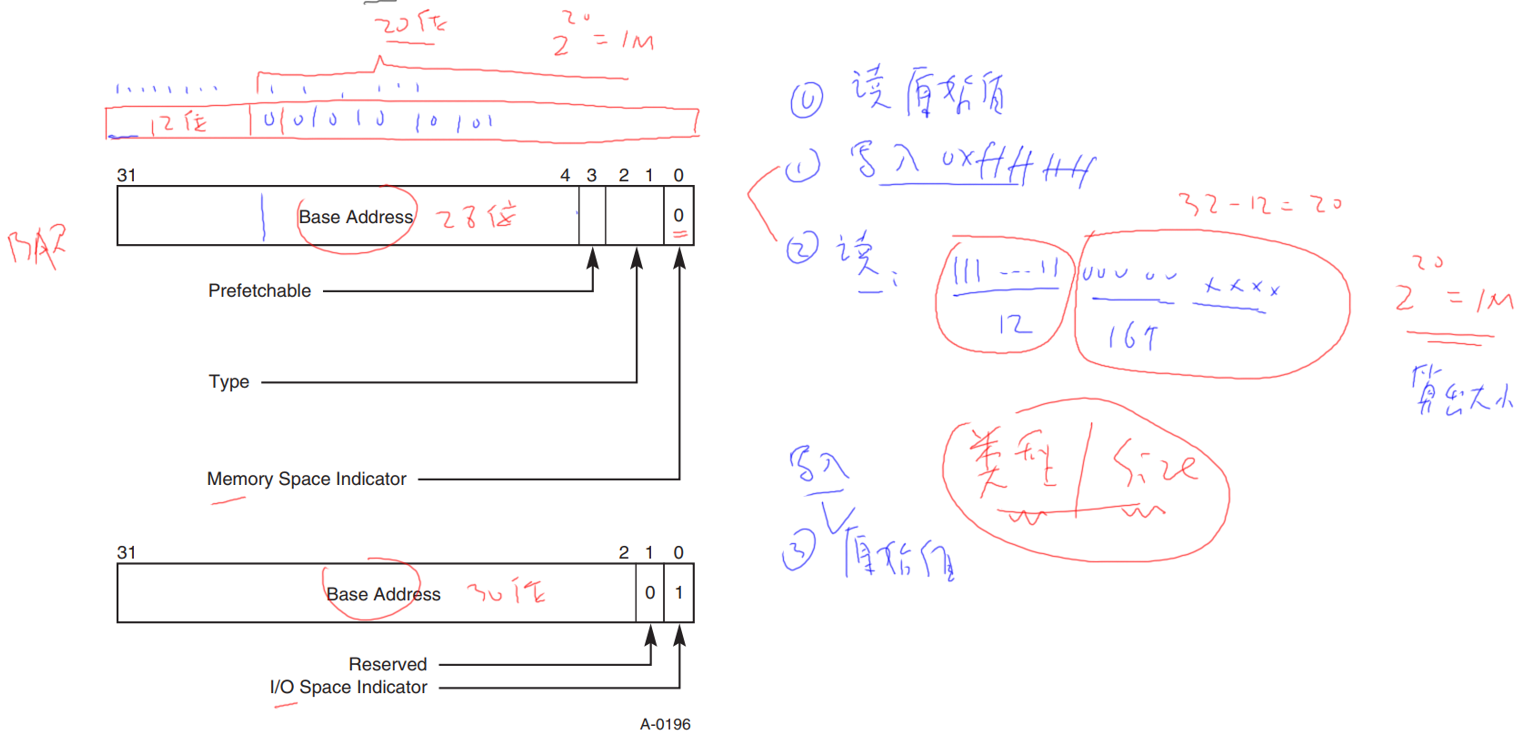 20位
2^20 = 1M
12位
31 4 3 2 1 0
Base Address 28位 0
BAR
Prefetchable
Type
Memory Space Indicator
31 2 1 0
Base Address 30位 0 1
Reserved
I/O Space Indicator
A-0196
⓪ 读原始值
① 写入 0xffffffff
32-12=20
② 读:
111...11 000 00 xxxx
12 16个
2^20 = 1M
算出大小
类型 Size
写入
③ 原始值